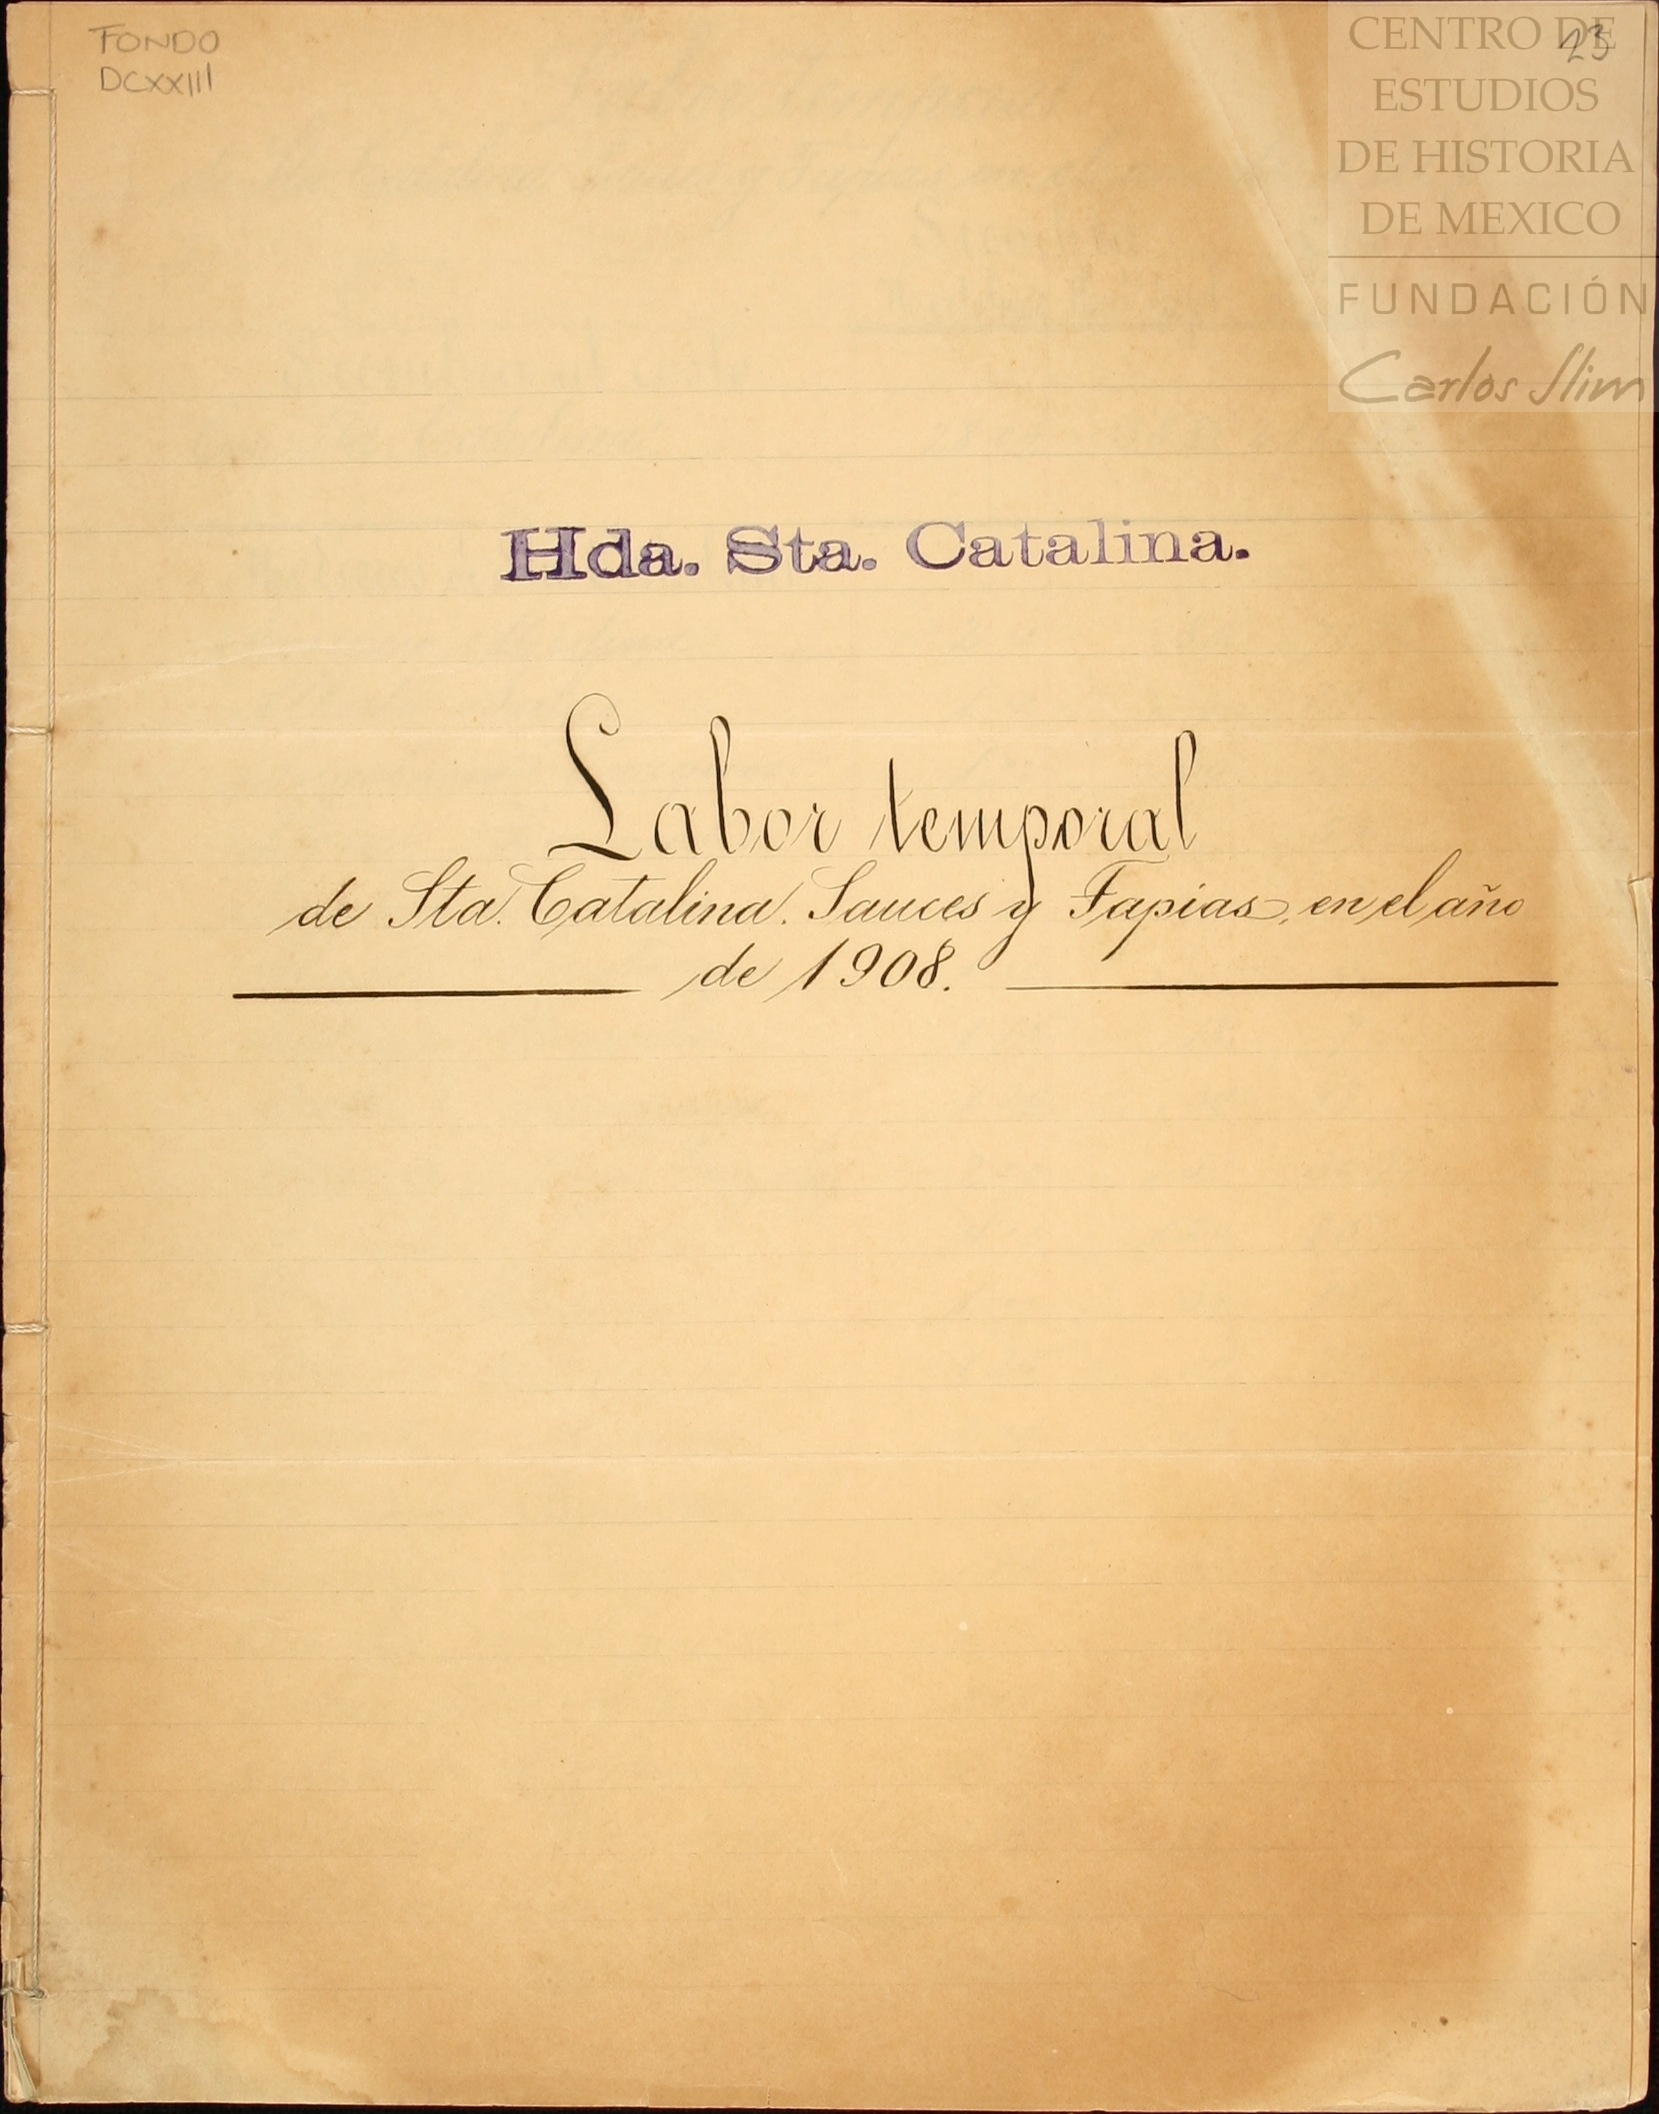 FONDO
DCXXIII
23
CENTRO DE
ESTUDIOS
DE HISTORIA
DE MEXICO
FUNDACIÓN
Carlos Slim
Hda. Sta. Catalina.
Labor temporal
de Sta. Catalina. Sauces y Tapias, en el año
de 1908.